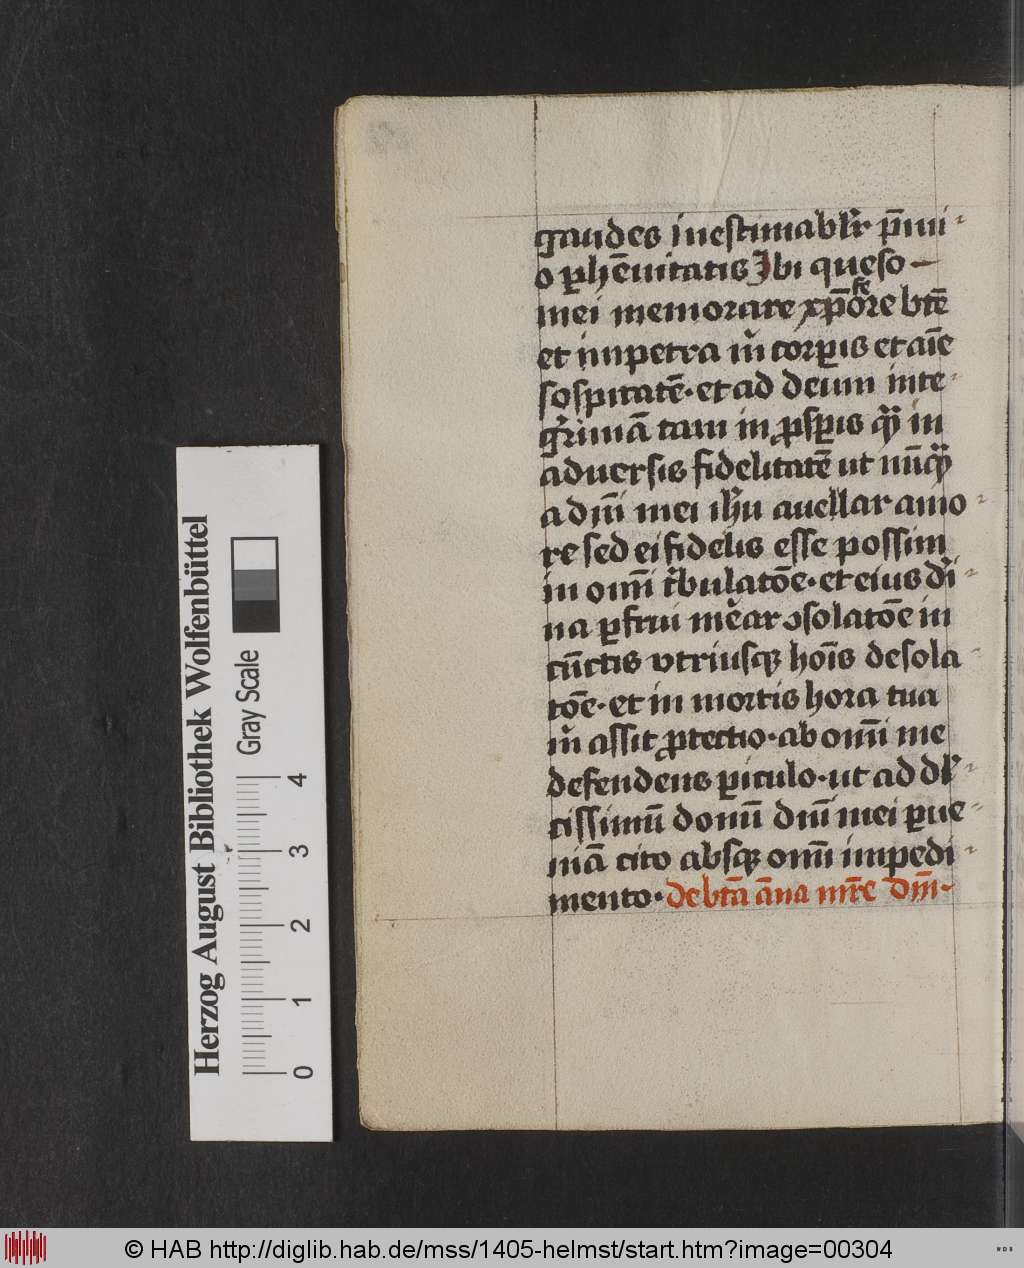 gaudes inestimabl'r p̄mi-
o ꝑhēnitatis Ibi queso
mei memorare xp̄ofore btē
et impetra m̄ corꝑis et aīe
sospitatē · et ad deum inte-
g̓rimā tam in ꝓsꝑis qͣ in
aduersis fidelitatē ut nūqͣ
a dn̄i mei ih̓u auellar amo-
re sed ei fidelis esse possim
in om̄i t̓bulatōe · et eius d̓i-
na ꝑfrui mēar ↄsolatōe in
cūctis vtriusqꝫ hoīs desola-
tōe · et in mortis hora tua
m̄ assit ꝓtectio · ab om̄i me
defendens ꝑiculo · ut ad dl'-
cissimū domū dn̄i mei ꝑue-
niā cito absqꝫ om̄i impedi-
mento · de btā āna mr̄e dn̄i
Herzog August Bibliothek Wolfenbüttel
Gray Scale
0 1 2 3 4
© HAB http://diglib.hab.de/mss/1405-helmst/start.htm?image=00304